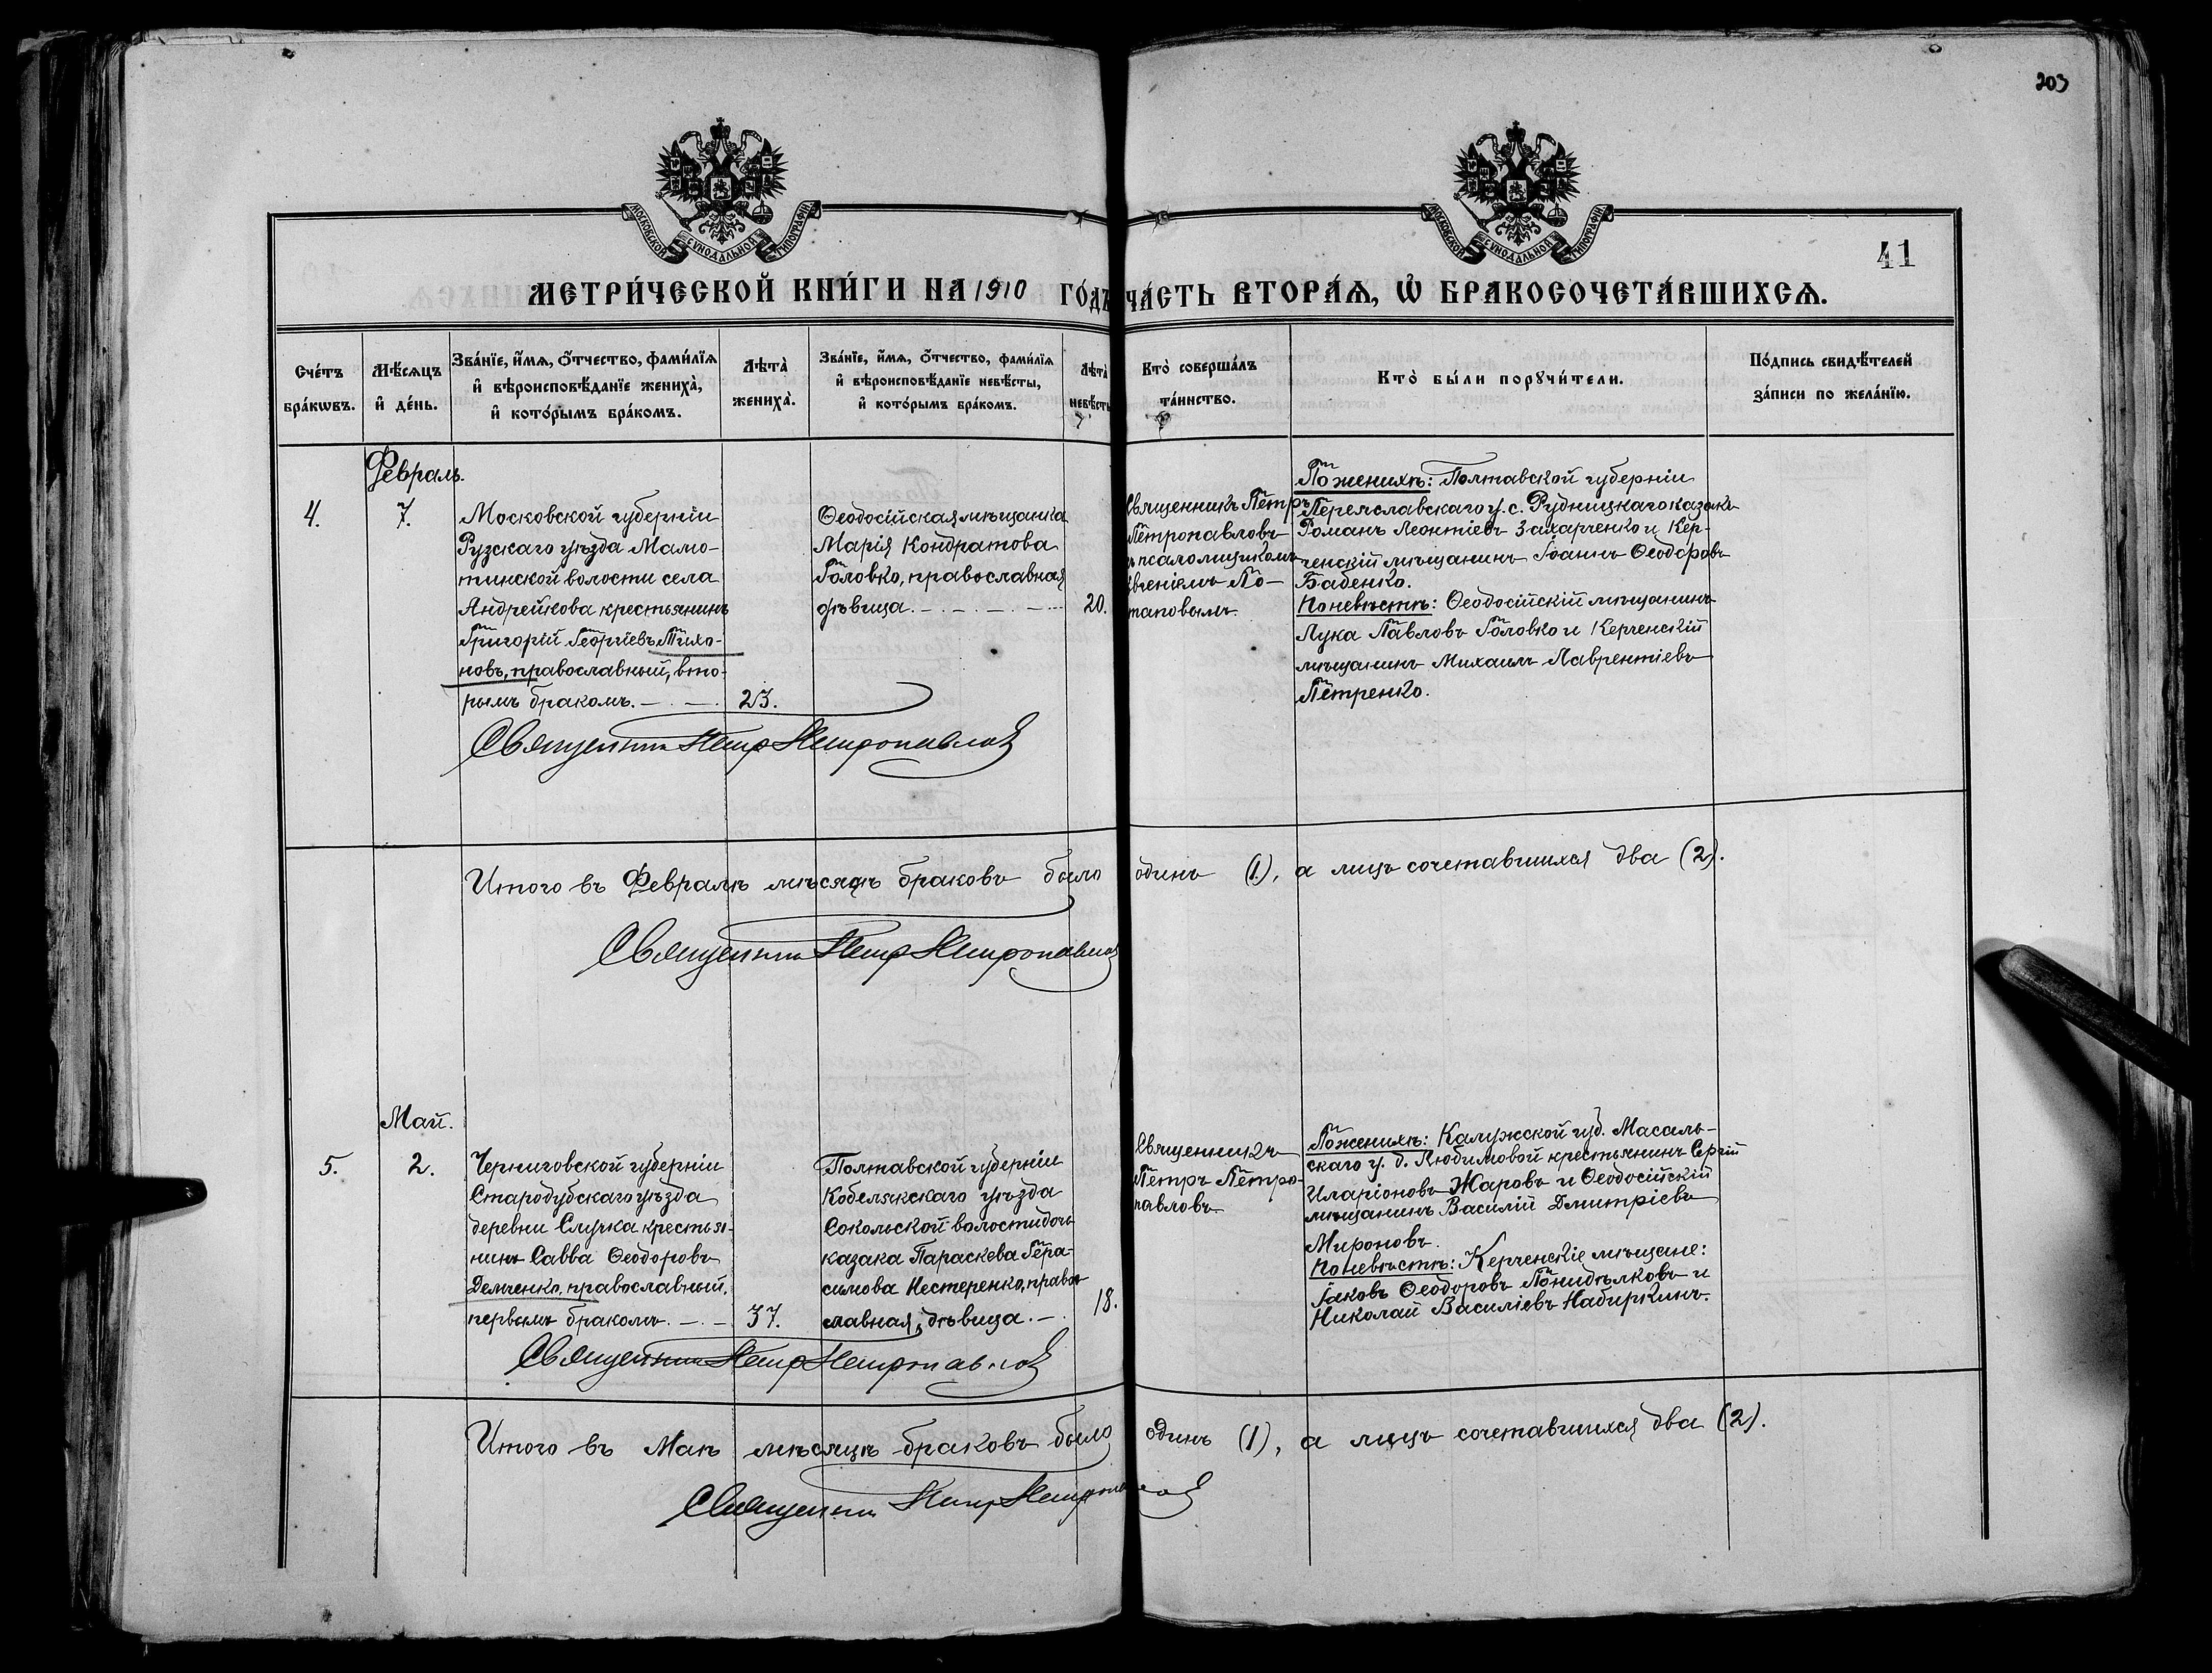 203
МОСКОВСКОЙ СѴНОДАЛЬНОЙ ТИПОГРАФІИ
МОСКОВСКОЙ СѴНОДАЛЬНОЙ ТИПОГРАФІИ
41
МЕТРИ́ЧЕСКОЙ КНИ́ГИ НА 1910 ГО́ДЪ ЧА́СТЬ ВТОРА́Ѧ, Ѡ҆ БРАКОСОЧЕТА́ВШИХСѦ.
Сче́тъ
бра́кѡвъ.
Мѣ́сѧцъ
и҆ де́нь.
Зва́нїе, и҆́мѧ, ѻ҆́тчество, фами́лїѧ
и҆ вѣроисповѣ́данїе жениха̀,
и҆ кото́рымъ бра́комъ.
Лѣта̀
жениха̀.
Зва́нїе, и҆́мѧ, ѻ҆́тчество, фами́лїѧ
и҆ вѣроисповѣ́данїе невѣ́сты,
и҆ кото́рымъ бра́комъ.
Лѣта̀
невѣ́сты
Кто̀ соверша́лъ
та́инство.
Кто̀ бы́ли порꙋчи́тели.
По́дпись свидѣ́телей
за́писи по жела́нїю.
Февраль.
4.
7.
Московской губерніи
Рузскаго уѣзда Мамо-
шинской волости села
Андрейкова крестьянинъ
Григорій Георгіевъ Тихо-
новъ, православный, вто-
рымъ бракомъ. — . — .
23.
Ѳеодосійская мѣщанка
Марія Кондратова
Головко, православная
дѣвица. — . — . — . —
20.
Священникъ Петръ
Петропавловъ
съ псаломщикомъ
Евгеніемъ По-
таповымъ.
По женихѣ: Полтавской губерніи
Переяславскаго у. с. Рудницкаго казакъ
Романъ Леонтіевъ Захарченко и Кер-
ченскій мѣщанинъ Іоаннъ Ѳеодоровъ
Баденко.
По невѣстѣ: Ѳеодосійскій мѣщанинъ
Лука Павловъ Головко и Керченскій
мѣщанинъ Михаилъ Лаврентіевъ
Петренко.
Священникъ Петръ Петропавловъ
Итого въ Февралѣ мѣсяцѣ браковъ было одинъ (1), а лицъ сочетавшихся два (2).
Священникъ Петръ Петропавловъ
Май.
5.
2.
Черниговской губерніи
Стародубскаго уѣзда
деревни Случка крестья-
нинъ Савва Ѳеодоровъ
Демченко, православный,
первымъ бракомъ. — . —
37.
Полтавской губерніи
Кобелякскаго уѣзда
Сокольской волости дочь
казака Параскева Гера-
симова Нестеренко, право-
славная, дѣвица. — .
18.
Священникъ
Петръ Петро-
павловъ
По женихѣ: Калужской губ. Масаль-
скаго у. д. Любимовой крестьянинъ Сергій
Иларіоновъ Жаровъ и Ѳеодосійскій
мѣщанинъ Василій Дмитріевъ
Мироновъ.
По невѣстѣ: Керченскіе мѣщане:
Іаковъ Ѳеодоровъ Понидѣлковъ и
Николай Василіевъ Набиркинъ.
Священникъ Петръ Петропавловъ
Итого въ Маѣ мѣсяцѣ браковъ было одинъ (1), а лицъ сочетавшихся два (2).
Священникъ Петръ Петропавловъ